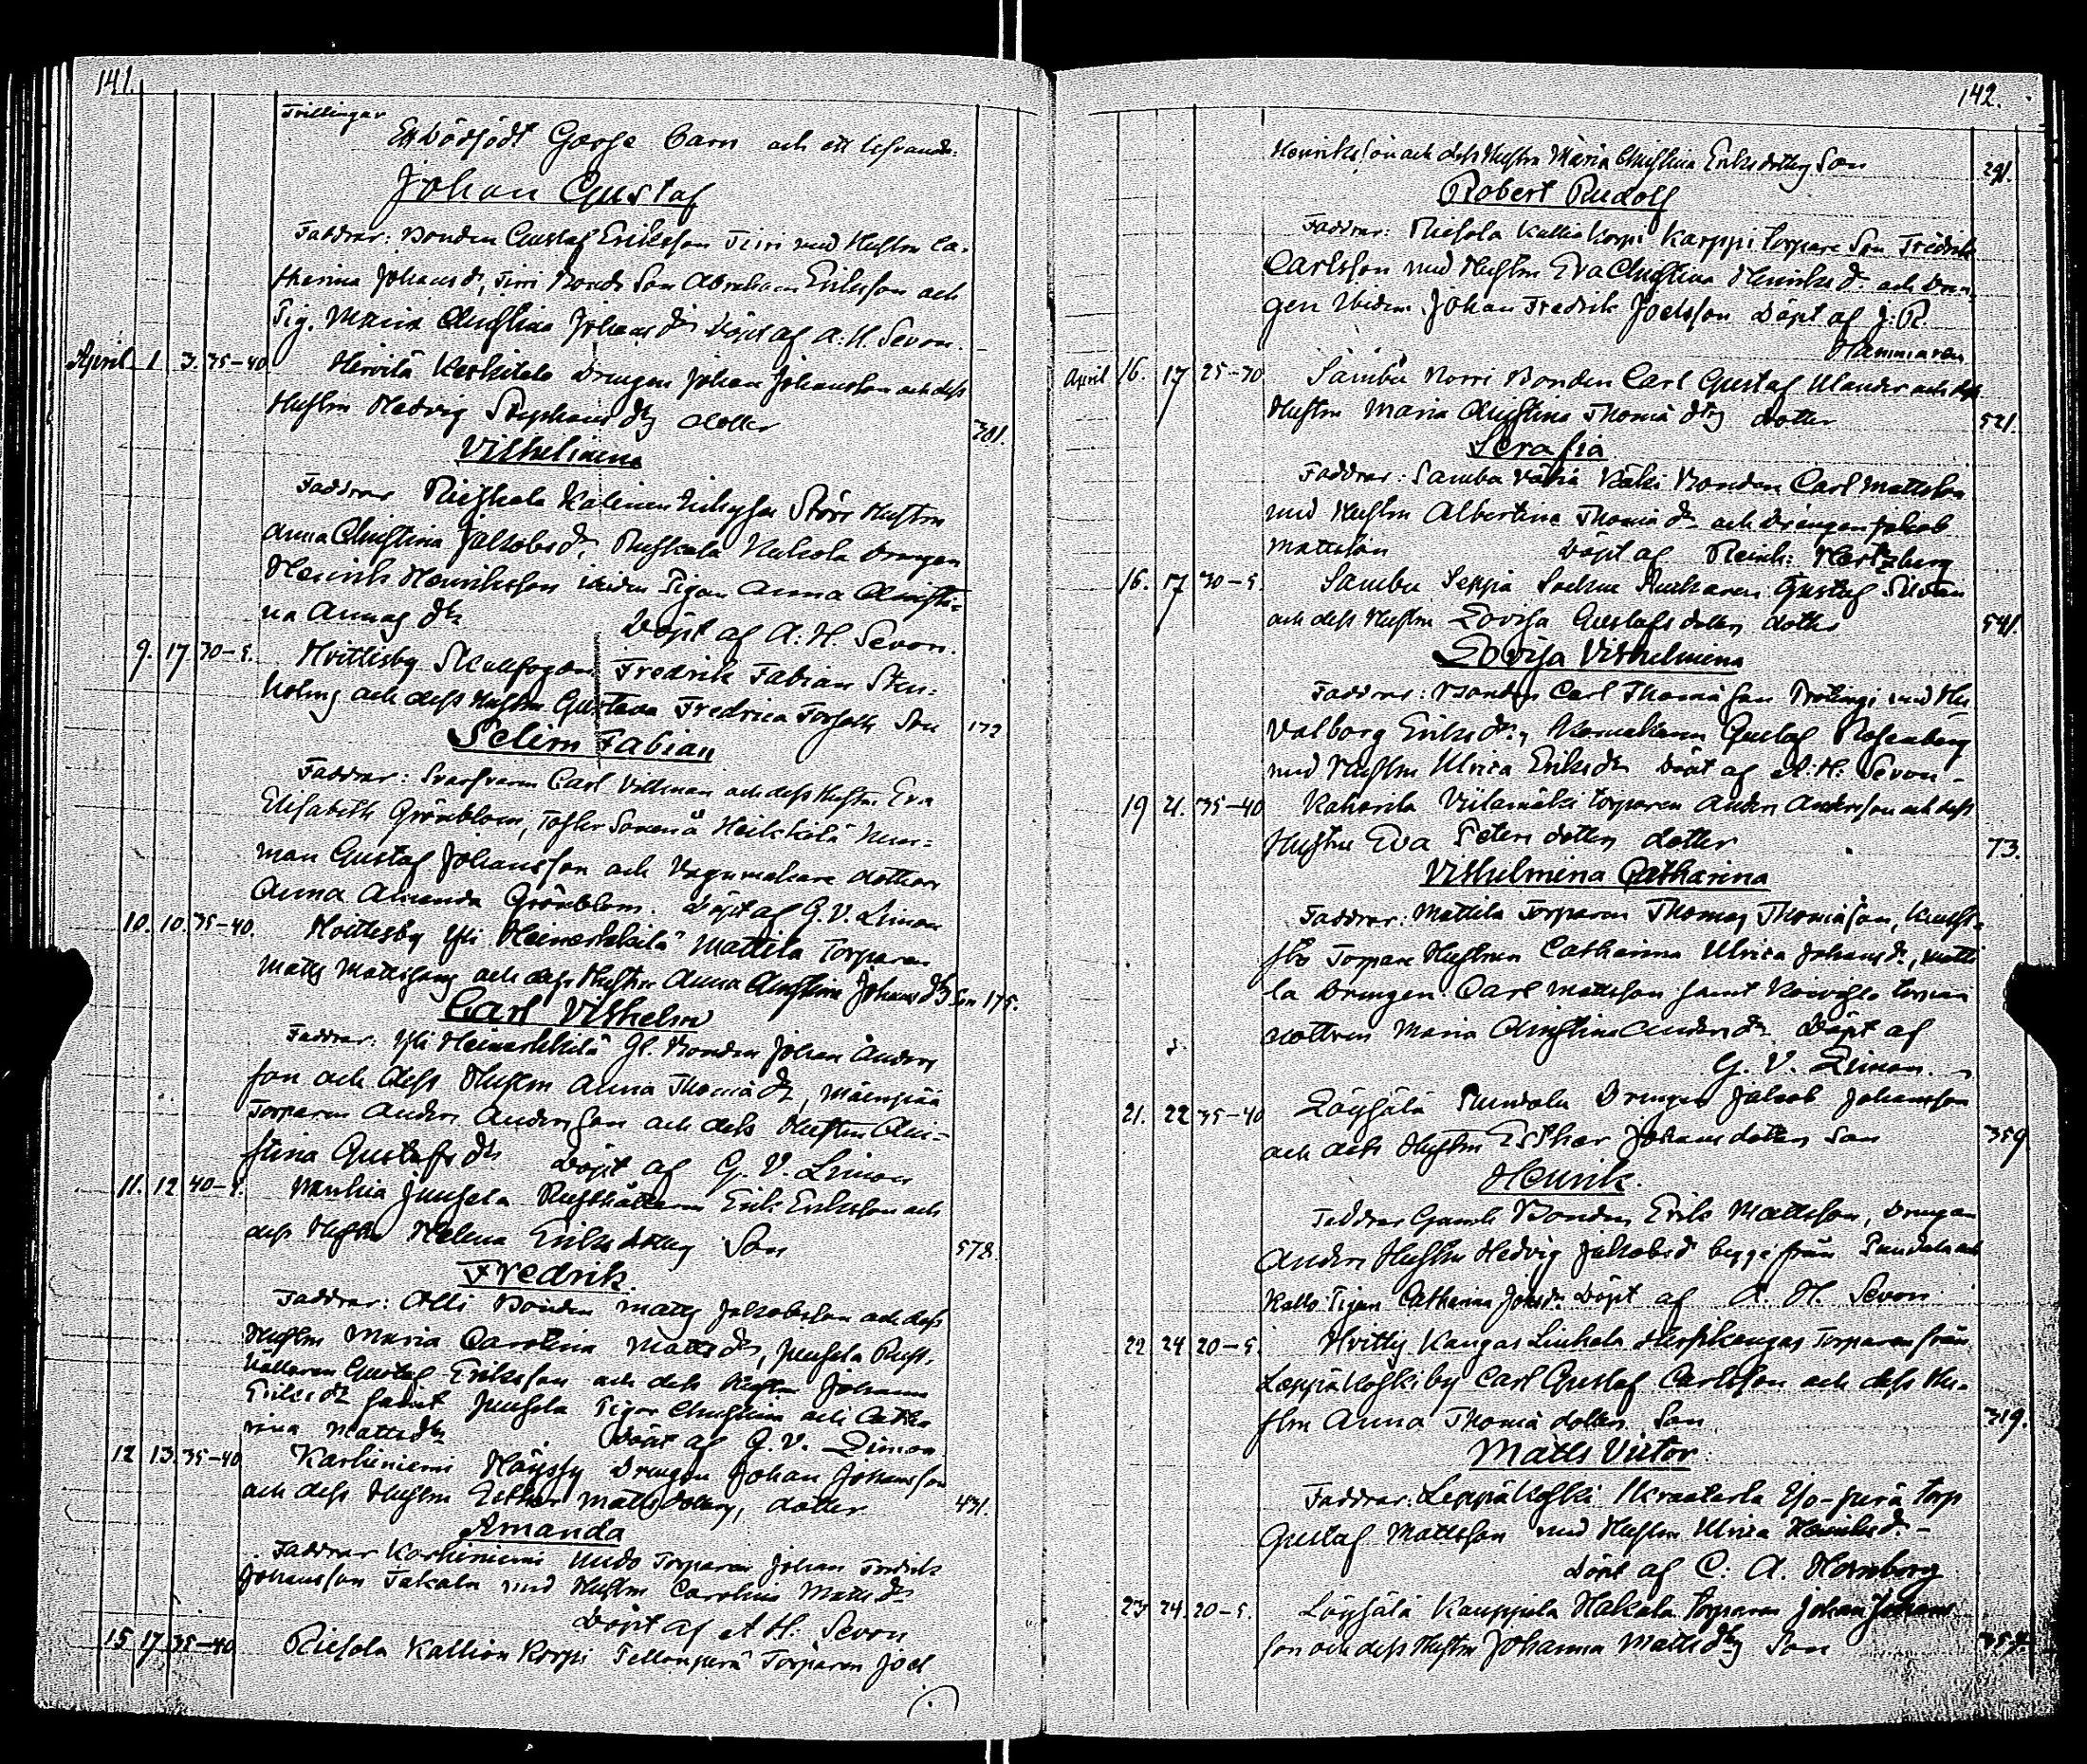 141.
Trillingar
Ett Dödfödt Gosse Barn och ett lefvande
Johan Gustaf
Faddrar: Bonden Gustaf Eriksson Jiri med Hustru Ca-
tharina Johansdr, Jiri Bonde Son Abraham Eriksson och
Pig. Maria Christina Johansdr Döpt af A. H. Sevon.
April 1 3. 35-40 Hervilä Keskitalo Drengen Johan Johansson och dess
Hustru Hedvig Stephansdrs dotter 301.
Vilhelmina
Faddrar Störr Hustru
Anna Christina Jakobsdr, Drengen
Henrik Henriksson ibidem Pigan Anna Christi-
na Annasdr Döpt af A. H. Sevon.
9. 17 30-5. Hvittisby Skallfogden Fredrik Fabian Sten-
holms och dess Hustru Gustava Fredrica Forssells Son 172
Selim Fabian
Faddrar: Svarfvaren Carl Villman och dess Hustru Eva
Elisabeth Grönblom, Heikkilä
man Gustaf Johansson och Vagnmakare dottren
Anna Amanda Grönblom. Döpt af G. V. Limon
10. 10. 35-40. Hvittisby Yli Heinerkkilä Mattila Torparen
Matts Mattssons och dess Hustru Anna Christina Johansdrs Son 175.
Carl Vilhelm
Faddrar: Yli Heinerkkilä Gl. Bonden Johan Anders
son och dess Hustru Anna Thomädr, Mäenpää
Torparen Anders Andersson och dess Hustru Chri-
stina Gustafsdr Döpt af G. V. Limon
11. 12 40-5. Junsela Rusthållaren Erik Eriksson och
dess Hustru Helena Eriksdotters Son 578.
Fredrik.
Faddrar: Olli Bonden Matts Jakobsson och dess
Hustru Maria Carolina Mattsdr, Junsela Rust-
hållaren Gustaf Eriksson och dess Hustru Johanna
Eriksdr samt Junsela Pigor Christina och Catha
rina Mattsdr Döpt af G. V. Limon
12 13. 35-40 Karhiniemi Häyssy Drengen Johan Johansson
och dess Hustru Esther Mattsdotters, dotter 431.
Amanda
Faddrar Karhiniemi Torparen Johan Fredrik
Johansson Takala med Hustru Carolina Mattsdr
Döpt af A. H. Sevon
15 17 35-40 Riesola Kallion Korpi Tellonperä Torparen Joel
142.
Henriksson och dess Hustru Maria Christina Eriksdotters Son 291.
Robert Rudolf
Faddrar: Riesola Kallio Korpi Karppi Torpare Son Fredrik
Carlsson med Hustru Eva Christina Henriksdr och Dren-
gen ibidem Johan Fredrik Joelsson Döpt af J. R.
Hammaren
April 16. 17 25-30 Sambu Norri Bonden Carl Gustaf Ulander och dess
Hustru Maria Christina Thomädtrs dotter 521.
Serafia
Faddrar: Sambu Käki Bonden Carl Mattsson
med Hustru Albertina Thomädr och Drengen Jakob
Mattsson Döpt af Reinh: Hertzberg
16. 17 30-5. Sambu Seppä Sockne Gustaf Silvan
och dess Hustru Lovisa Gustafsdotters dotter 541.
Lovisa Vilhelmina
Faddrar: Bonden Carl Thomäson med Hu
Valborg Eriksdr, Gustaf Rosenberg
med Hustru Ulrica Eriksdr Döpt af A. H. Sevon -
19 21. 35-40 Kaharila Viilamäki Torparen Anders Andersson och dess
Hustru Eva Petersdotters dotter 73.
Vilhelmina Catharina
Faddrar: Mattila Torparen Thomas Thomäson,
Torpare Hustrun Catharina Ulrica Johansdr, Matti
la Drengen Carl Mattsson samt Torpare
dottren Maria Christina Andersdr Döpt af
G. V. Limon.
21. 22 35-40 Löysälä Pundola Drengen Jakob Johansson
och dess Hustru Esther Johansdotters Son 359
Henrik.
Faddrar Gamle Bonden Erik Mattsson, Drengen
Anders Hustru Hedvig Jakobsdr begge från Pundola och
Kallo Pigan Catharina Johsdr. Döpt af A. H. Sevon
22 24 20-5. Hvittis Kangas Torparen från
Leppäkoskiby Carl Gustaf Carlsson och dess Hu-
stru Anna Thomädotters Son 319.
Matts Victor
Faddrar: Leppäkoski Torp
Gustaf Mattsson med Hustru Ulrica Henriksdr. -
Döpt af C. A. Hornborg
23 24. 20-5. Löysälä Kauppila Hakala Torparen Johan Johans
son och dess Hustru Johanna Mattsdtrs Son 357